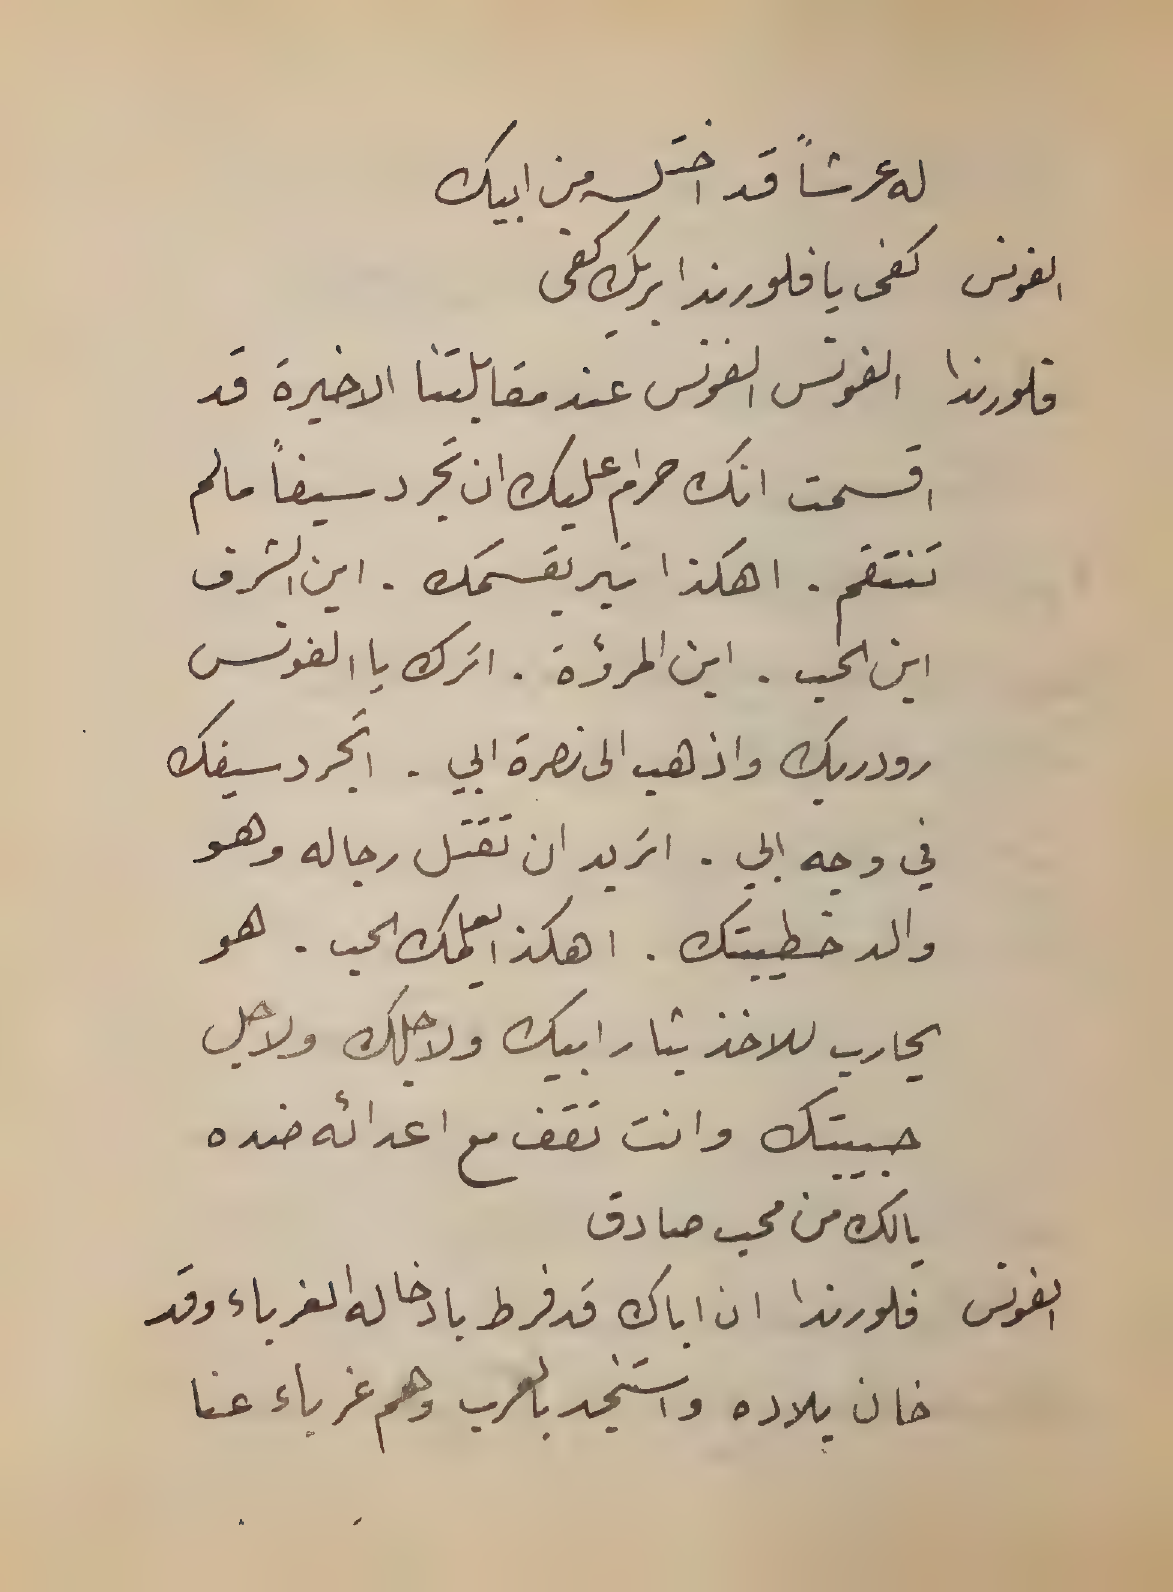 له عرشاً قد اختلسه من ابيك
الفونس كفى يا فلورندا بربك كفى
فلورندا الفونس الفونس عند مقابلتنا الاخيرة قد
اقسمت انك حرام عليك ان تجرد سيفاً مالم
تنتقم . اهكذا تبر بقسمك . اين الشرف
اين الحب . اين المرؤة . اترك يا الفونس
رودريك واذهب الى نصرة ابي . اتجرد سيفك
في وجه ابي . اتريد ان تقتل رجاله وهو
والد خطيبتك . اهكذا يعلمك الحب . هو
يحارب للاخذ بثار ابيك ولاجلك ولاجل
حبيبتك وانت تقف مع اعدائه ضده
يالك من محب صادق
الفونس فلورندا ان اباك قد فرط بادخاله الغرباء وقد
خان بلاده واستنجد بالعرب وهم غرباء عنا